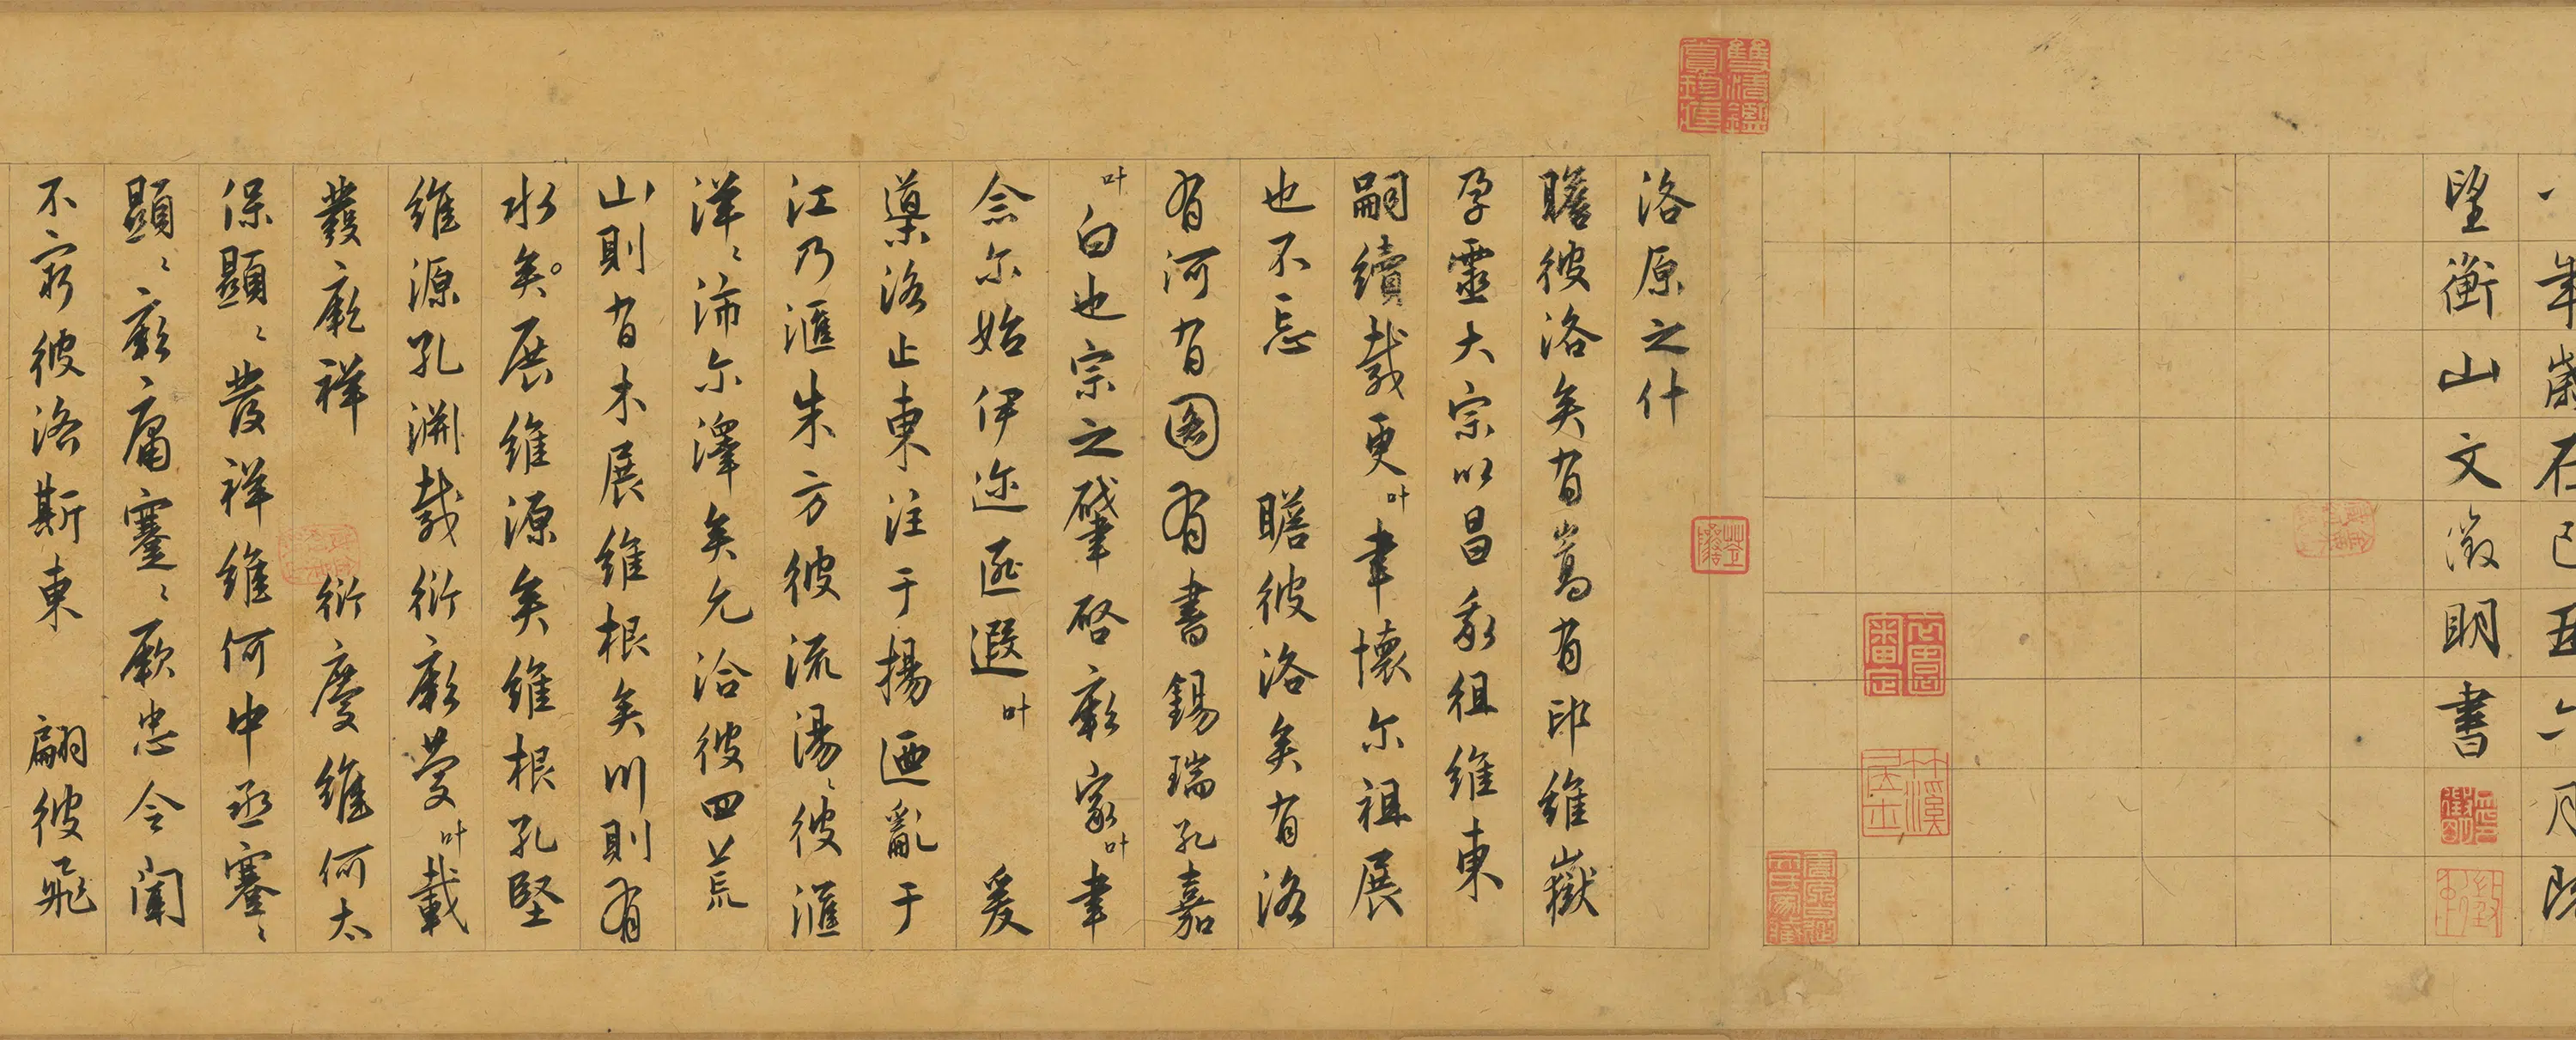 八年歲在己丑六月既
望衡山文徵明書
洛原之什
瞻彼洛矣有嵩有邙維嶽
孕靈大宗以昌永祖維東
嗣續載更叶聿懷尔祖展
也不忘 瞻彼洛矣有洛
有河有圖有書錫瑞孔嘉
叶白也宗之肇啓厥家叶聿
念尔始伊迩匪遐叶 爰
導洛止東注于揚迺亂于
江乃滙朱方彼流湯〻彼滙
洋〻沛尔澤矣允洽彼四荒
山則有木展維根矣川則有
水矣展維源矣維根孔堅
維源孔淵載衍厥慶叶載
發厥祥 衍慶維何太
保顯〻發祥維何中丞蹇〻
顯〻厥庸蹇〻厥忠令聞
不窮彼洛斯東 翩彼飛